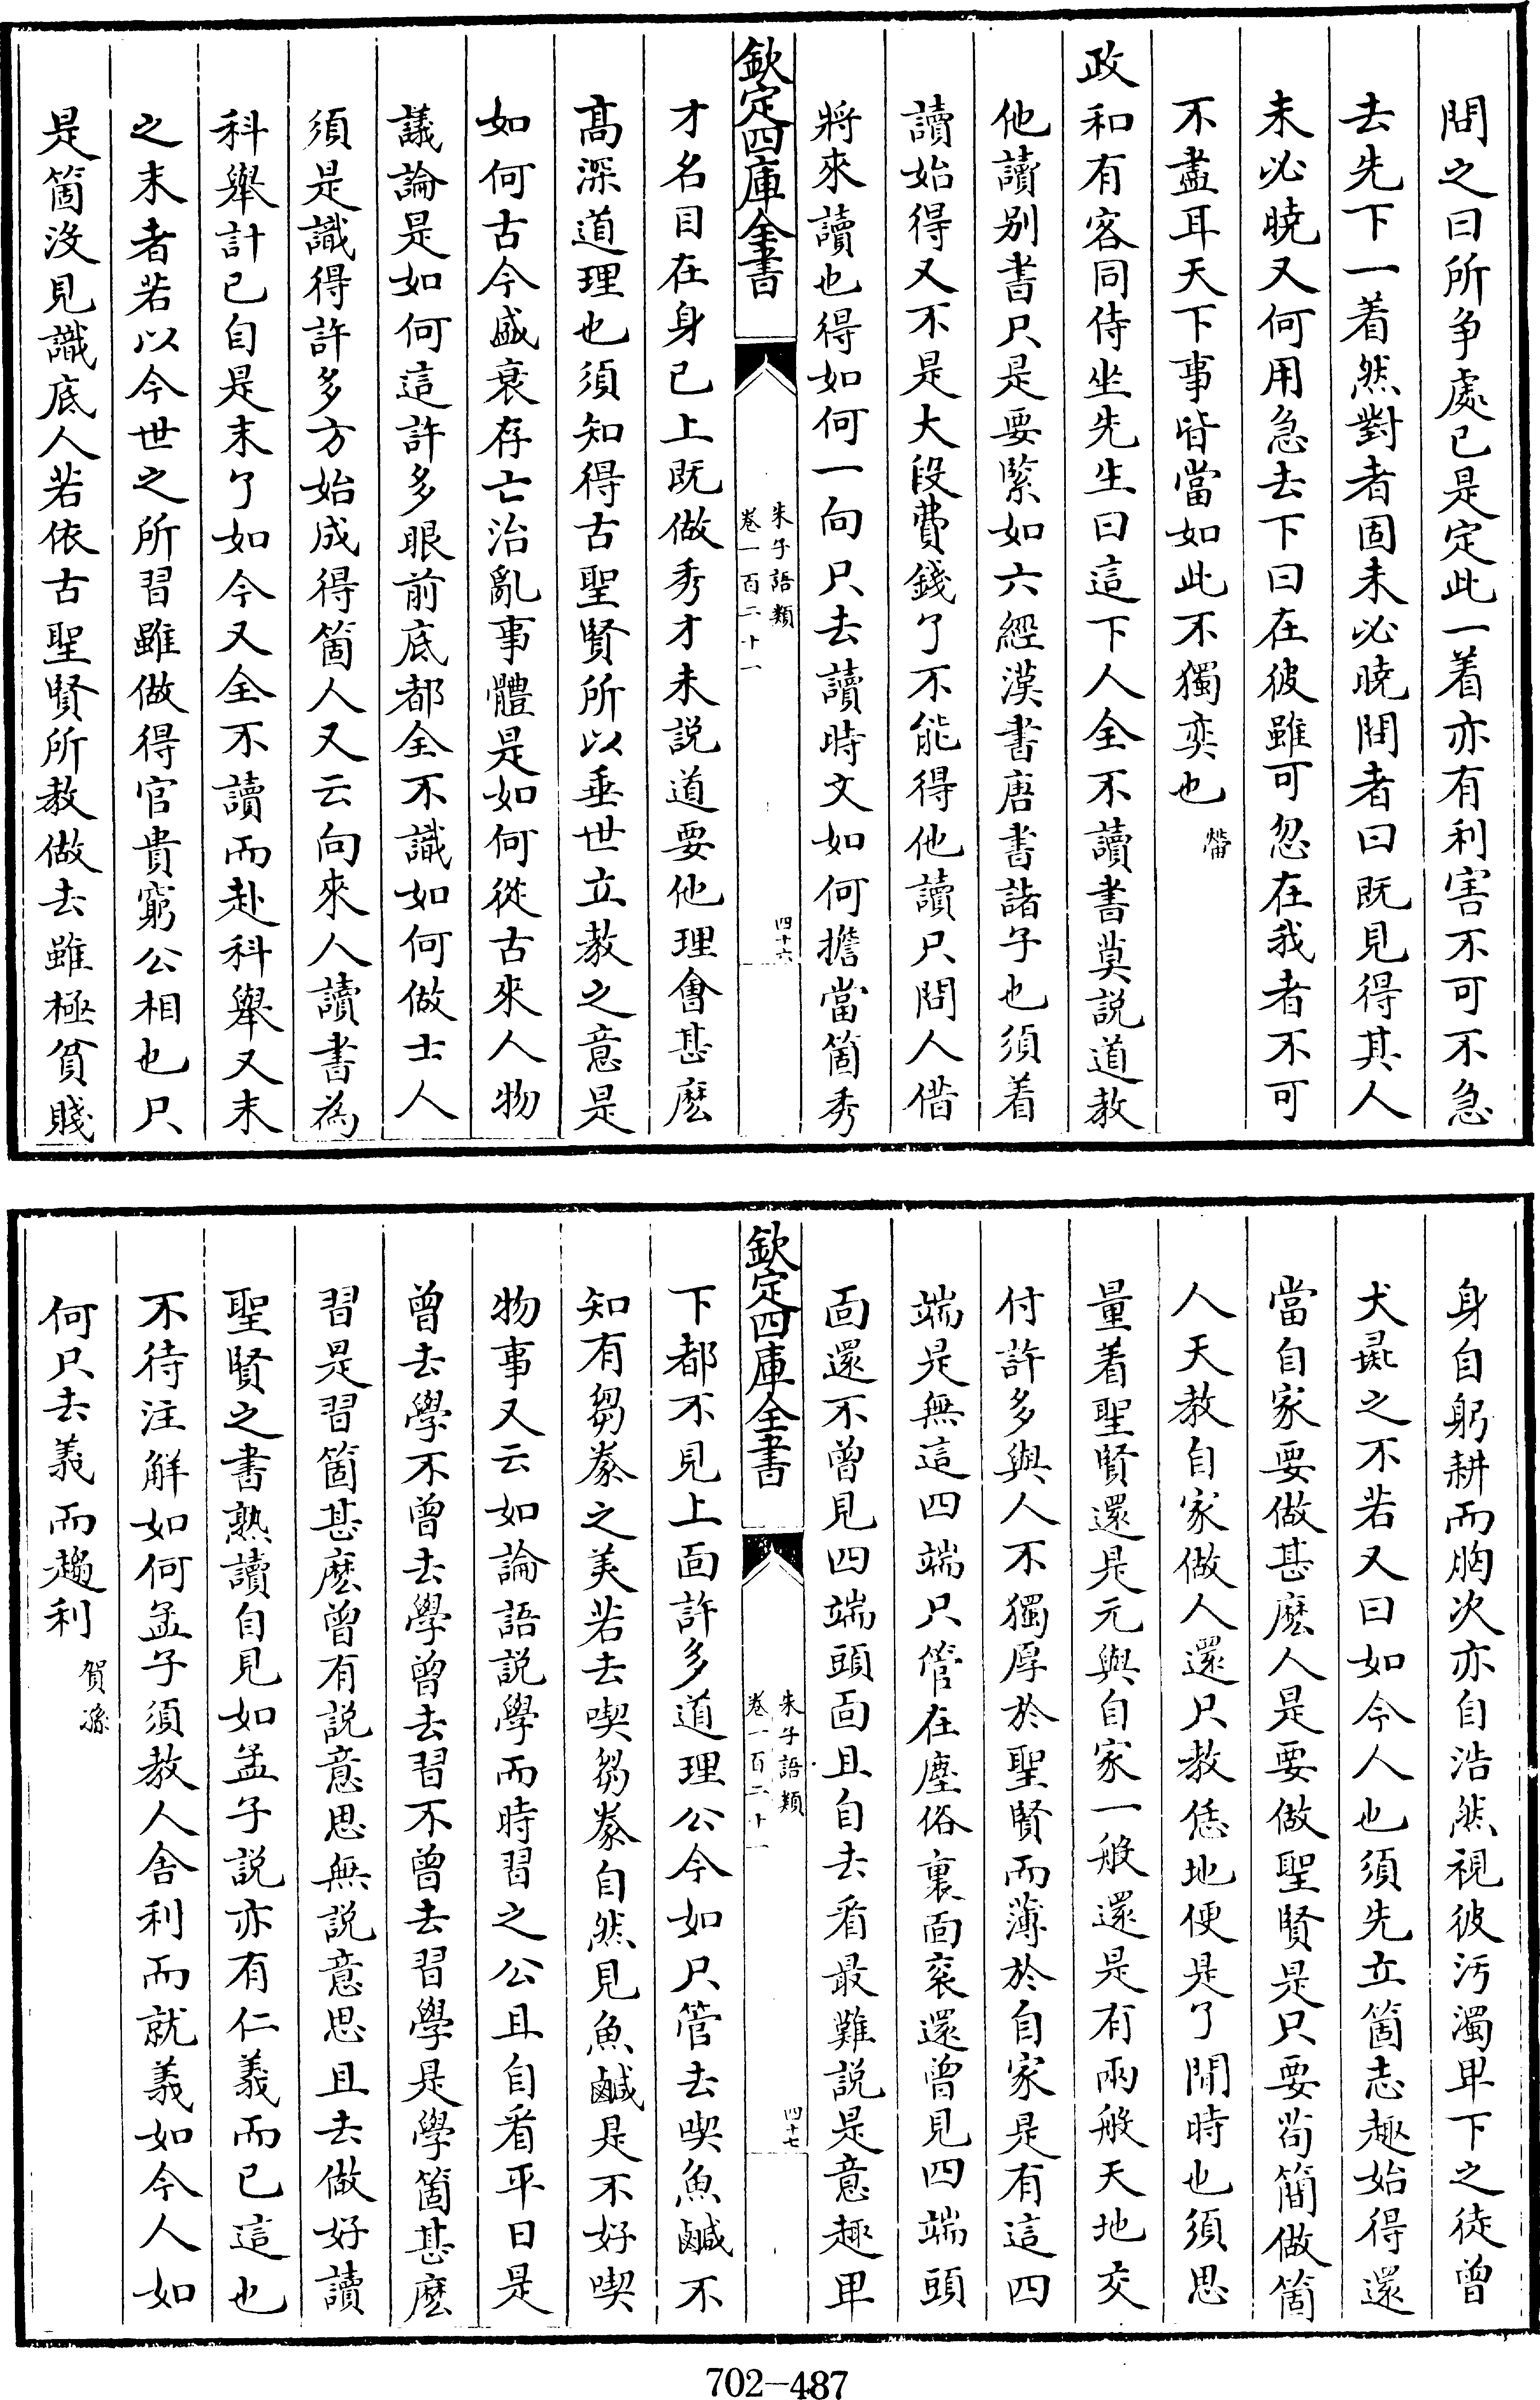 問之曰所争處已是定此一着亦有利害不可不急
去先下一着然對者固未必曉問者曰既見得其人
未必曉又何用急去下曰在彼雖可忽在我者不可
不盡耳天下事皆當如此不獨奕也㽦
政和有客同侍坐先生曰這下人全不讀書莫説道教
他讀别書只是要緊如六經漢書唐書諸子也須着
讀始得又不是大段費錢了不能得他讀只問人借
將來讀也得如何一向只去讀時文如何擔當箇秀
欽定四庫全書
朱子語類
卷一百二十一
四十六
才名目在身已上既做秀才未説道要他理會甚麽
高深道理也須知得古聖賢所以垂世立教之意是
如何古今盛衰存亡治亂事體是如何從古來人物
議論是如何這許多眼前底都全不識如何做士人
須是識得許多方始成得箇人又云向來人讀書為
科舉計已自是末了如今又全不讀而赴科舉又末
之末者若以今世之所習雖做得官貴窮公相也只
是箇没見識底人若依古聖賢所教做去雖極貧賤
身自躬耕而胸次亦自浩然視彼汚濁卑下之徒曾
犬彘之不若又曰如今人也須先立箇志趣始得還
當自家要做甚麽人是要做聖賢是只要苟簡做箇
人天教自家做人還只教恁地便是了閒時也須思
量着聖賢還是元與自家一般還是有兩般天地交
付許多與人不獨厚於聖賢而薄於自家是有這四
端是無這四端只管在塵俗裏面衮還曾見四端頭
面還不曾見四端頭面且自去看最難説是意趣卑
欽定四庫全書
朱子語類
卷一百二十一
四十七
下都不見上面許多道理公今如只管去喫魚鹹不
知有芻豢之美若去喫芻豢自然見魚鹹是不好喫
物事又云如論語説學而時習之公且自看平日是
曾去學不曾去學曾去習不曾去習學是學箇甚麽
習是習箇甚麽曾有説意思無説意思且去做好讀
聖賢之書熟讀自見如孟子説亦有仁義而已這也
不待注解如何孟子須教人舍利而就義如今人如
何只去義而趨利賀孫
702-487